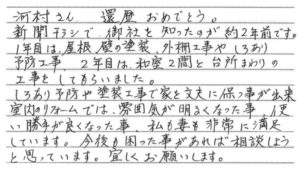 河村さん 還暦おめでとう。
新聞チラシで御社を知ったのが約2年前です。
1年目は、屋根壁の塗装、外柵工事やしろあり
予防工事、2年目は、和室2間と台所まわりの
工事をしてもらいました。
しろあり予防や塗装工事で家を丈夫に保つ事が出来
室内のリフォームでは、雰囲気が明るくなった事、使い
勝手が良くなった事、私も妻も非常に満足
しています。今後も困った事があれば相談しよう
と思っています。宜しくお願いします。